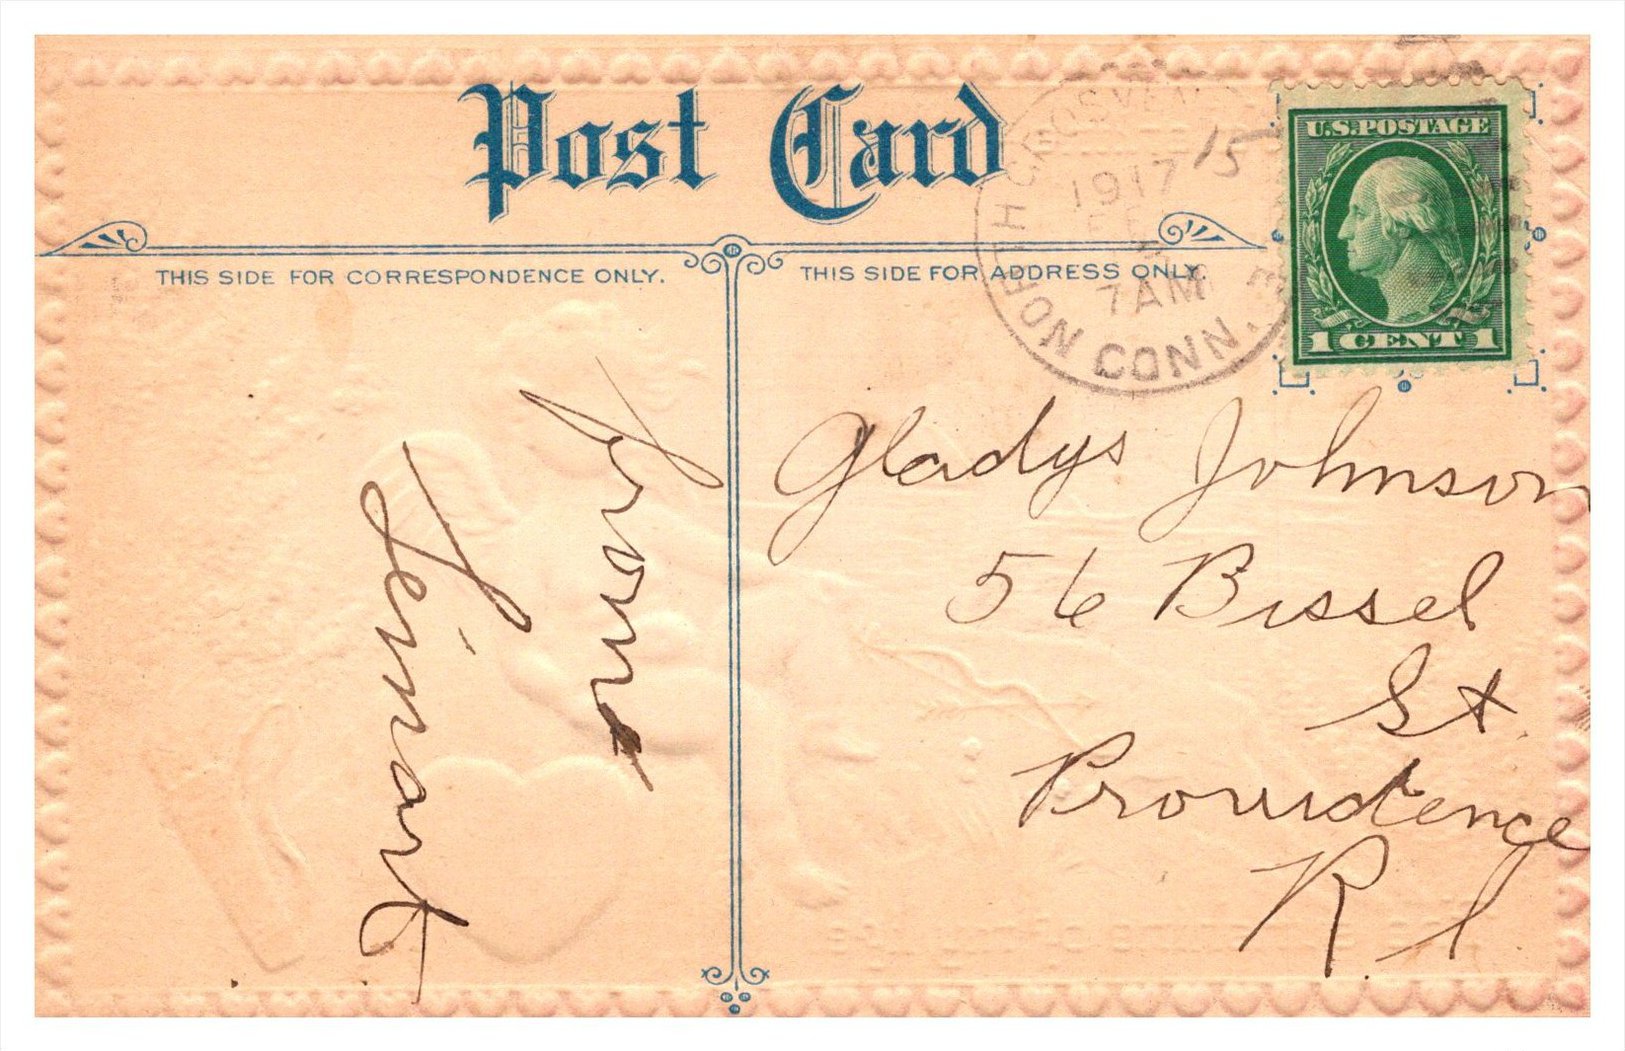 Post Card
THIS SIDE FOR CORRESPONDENCE ONLY.
THIS SIDE FOR ADDRESS ONLY.
NORTH GROSVENOR
1917
15
FEB
7AM
CONN.
U.S. POSTAGE
1 CENT 1
from
Leinart
Gladys Johnson
56 Bissel
St.
Providence
R I